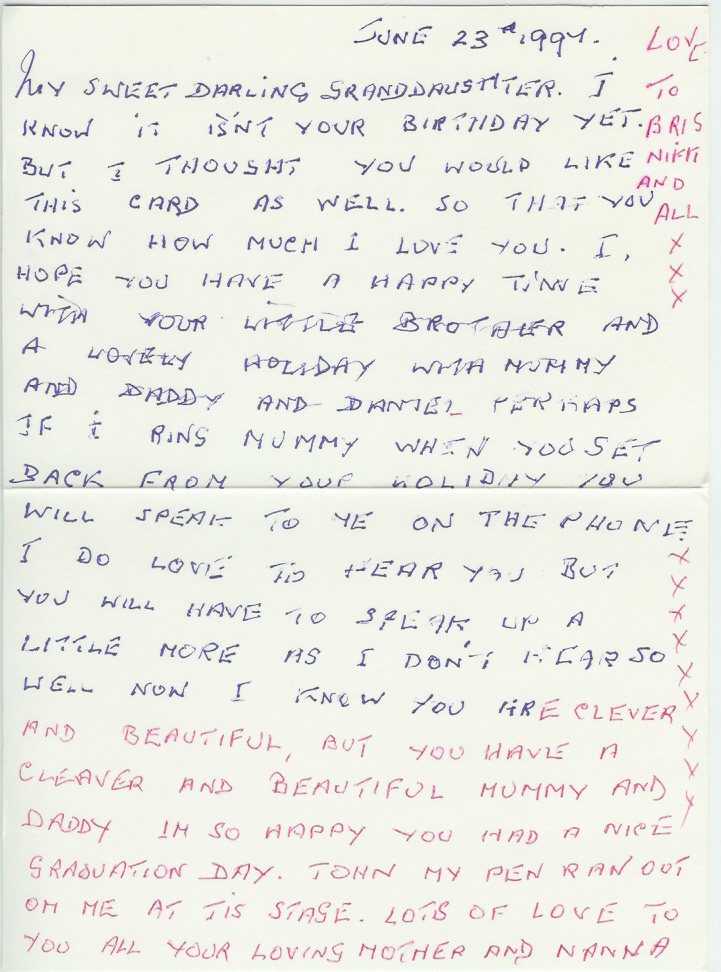 JUNE 23rd 1997.
MY SWEET DARLING GRANDDAUGHTER. I
KNOW IT ISN'T YOUR BIRTHDAY YET.
BUT I THOUGHT YOU WOULD LIKE
THIS CARD AS WELL. SO THAT YOU
KNOW HOW MUCH I LOVE YOU. I,
HOPE YOU HAVE A HAPPY TIME
WITH YOUR LITTLE BROTHER AND
A LOVELY HOLIDAY WITH MUMMY
AND DADDY AND DANIEL PERHAPS
IF I RING MUMMY WHEN YOU GET
BACK FROM YOUR HOLIDAY YOU
WILL SPEAK TO ME ON THE PHONE.
I DO LOVE TO HEAR YOU BUT
YOU WILL HAVE TO SPEAK UP A
LITTLE MORE AS I DON'T HEAR SO
WELL NOW I KNOW YOU ARE CLEVER
AND BEAUTIFUL, BUT YOU HAVE A
CLEAVER AND BEAUTIFUL MUMMY AND
DADDY IM SO HAPPY YOU HAD A NICE
GRADUATION DAY. JOHN MY PEN RAN OUT
ON ME AT TIS STAGE. LOTS OF LOVE TO
YOU ALL YOUR LOVING MOTHER AND NANNA
LOVE
TO
BRIS
NIKKI
AND
ALL
X
X
X
X
X
X
X
X
X
X
X
X